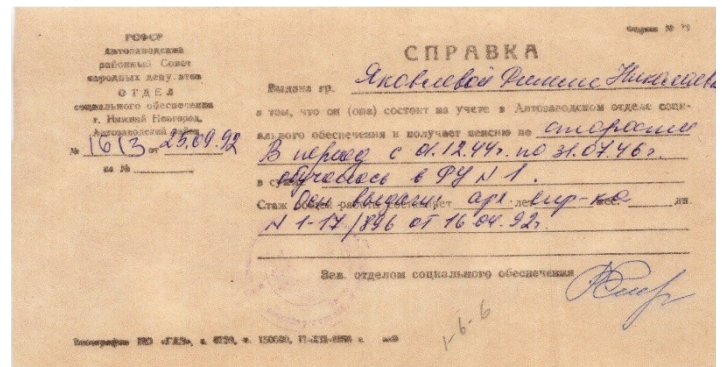 Форма № 79
РСФСР
Автозаводский
районный Совет
народных депутатов
ОТДЕЛ
социального обеспечения
г. Нижний Новгород,
Автозаводский район
№ 1613 от 25.09.92
на №
СПРАВКА
Выдана гр. Яковлевой Римме Николаевне
в том, что он (она) состоит на учете в Автозаводском отделе соци-
ального обеспечения и получает пенсию по старости
В период с 01.12.44г. по 31.07.46г.
в сумме обучалось в ФУ N 1.
Стаж работы составляет лет мес. дн
Осн выдачи арх спр-ка
N 1-17/896 от 16.04.92г.
Зав. отделом социального обеспечения
1-6-6
Типография ПО «ГАЗ», з. 6729, т. 150000